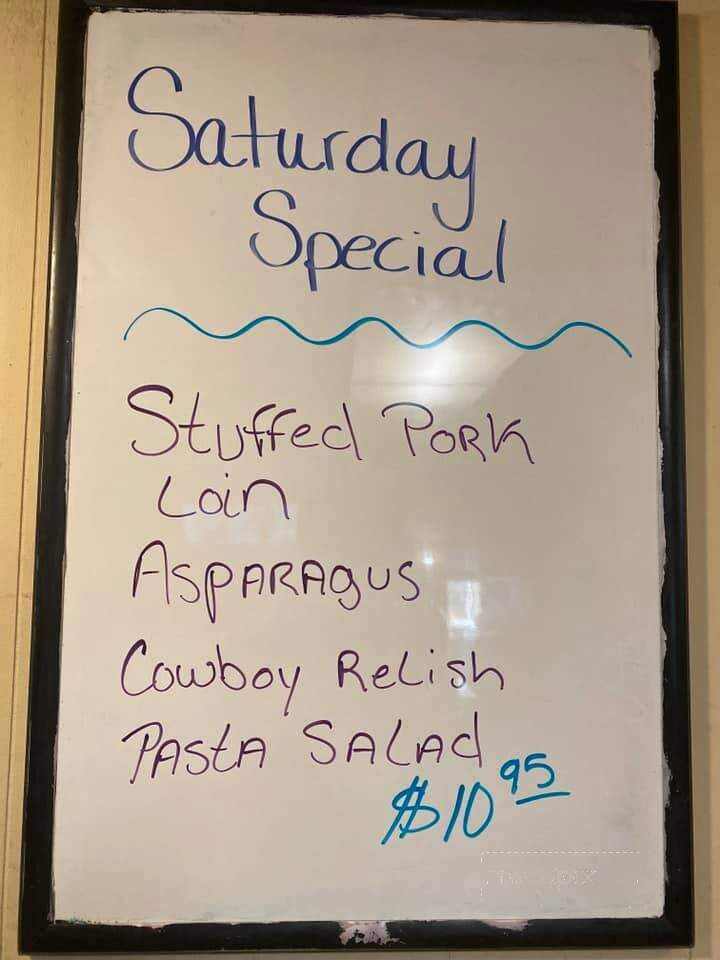 Saturday
Special
Stuffed Pork
Loin
Asparagus
Cowboy Relish
Pasta Salad
$10 95